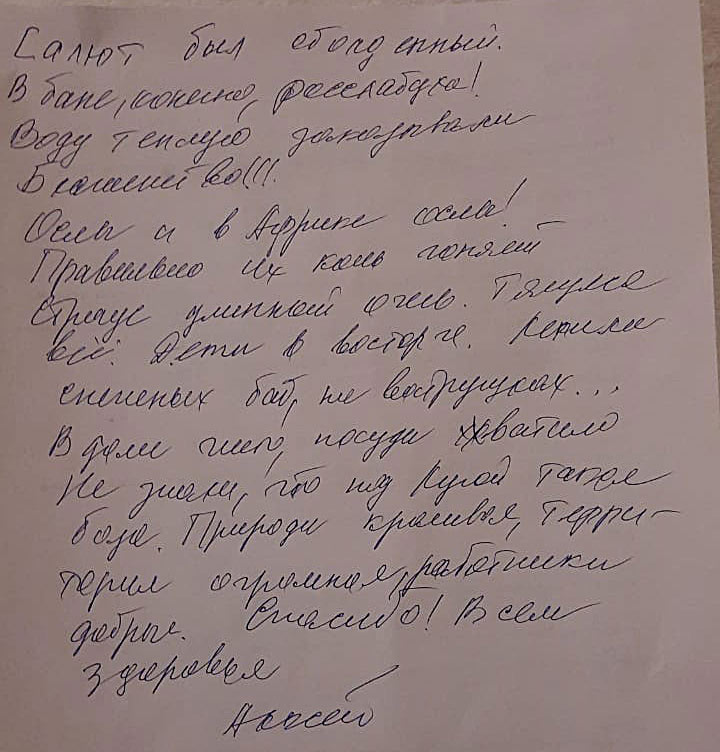 Салют был обалденный.
В бане, конечно, расслабуха!
Воду теплую заказывали
Блаженство!!!
Ослы и в Африке ослы!
Правильно их конь гоняет
Страус длинный очень. Тянулся
всё. Дети в восторге.
снежных баб, на ватрушках...
В доме тепло, посуды хватило
Не знали, что под такая
база. Природа красивая, терри-
тория огромная, работники
добрые. Спасибо! Всем
здоровья